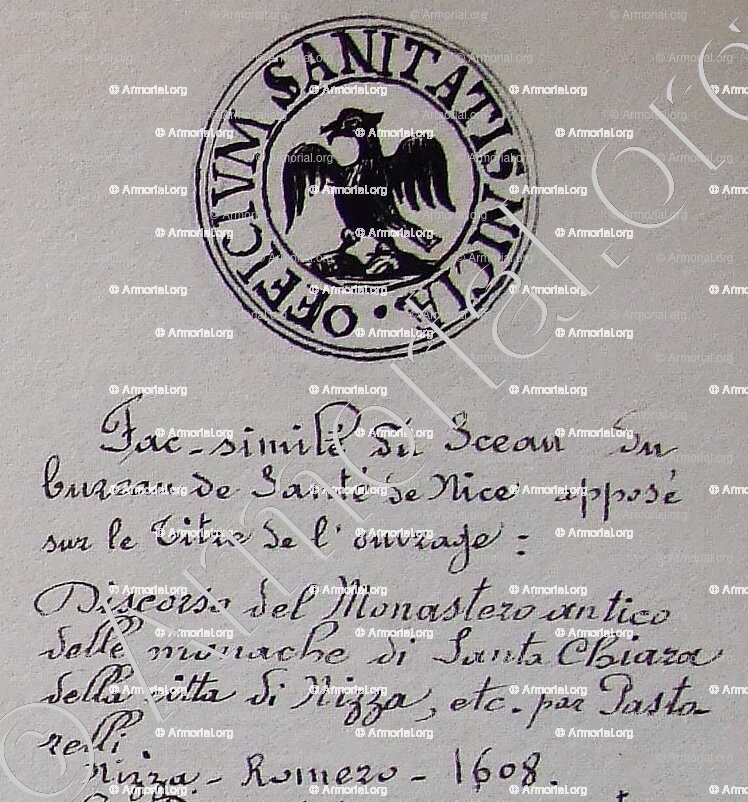 OFFICIVM SANITATIS NICIÆ ·
Fac-similé du Sceau du
bureau de Santé de Nice apposé
sur le Titre de l'ouvrage :
Discorso del Monastero antico
delle monache di Santa Chiara
della citta di Nizza, etc. par Pasto
relli
Nizza - Romero - 1608.
© Armorial.org